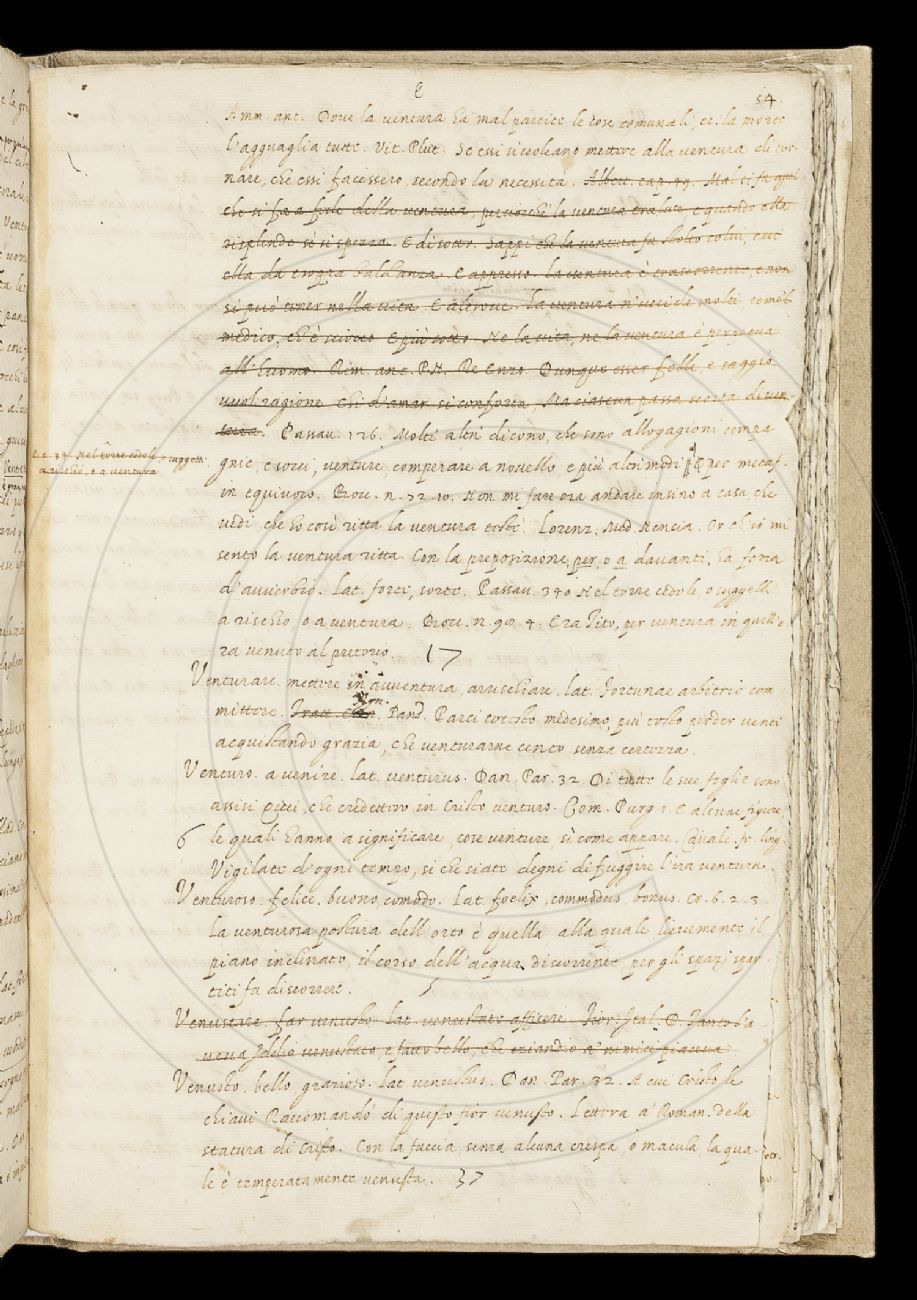 E
54.
Amm. ant. Dove la ventura ha mal partite le cose comunali, et. la morte
l'agguaglia tutte. Vit. Plut. Se essi si voleano mettere alla ventura di tor-
nare, che essi facessero, secondo la necessità. Alber. cap. 39. Mal si fa qui
che si fa a fede della ventura, perciocchè la ventura tralute, e quando ella
risplende sì si spezza. E di sotto. Sappi che la ventura fa stolto colui, cui
ella dà troppa baldanza. E appresso. La ventura è trascorrente, e non
si può tener nella vita. E altrove. La ventura n' uccide molti com' è'l
medico, ch' è sciocco. E più sotto. Ne la vita, ne la ventura è perpetua
all' huomo. Rim. ant. P.N. Re Enzo. Dunque esser folle, e saggio
vuol ragione. Chi d'amar si conforta, Ma ciascun passa scorsa di ven-
tura. Passau. 126. Molti altri dicono, che sono allogagioni compa-
gnie, e socci, venture, comperare a novello, e più altri modi. E per metaf.
in equivoco. Bocc. n. 72. 10. Non mi fare ora andare insino a casa, che
vedi che ho così ritta la ventura testè. Lorenz. Med. Nencia. Or ch' io mi
sento la ventura ritta. Con la preposizione, per, o a davanti, ha forza
d'avverbio. Lat. forte, sorte. Passau. 340 Nel torre cedole, o suggelli
a rischio o a ventura. Bocc. n. 99. 4. Era Tito, per ventura in quell' o
ra venuto al pretorio. 17
C. c. 34. Nel torre cedole, o saggetti
a rischio, e a ventura
Venturare. mettere in avventura, arrischiare. Lat. Fortunae arbitrio com
mittere. Pand. Parci cotesto medesimo, più tosto perder venti
acquistando grazia, che venturarne cento senza certezza.
Venturo. a venire. Lat. venturus. Dan. Par. 32. Di tutte le sue foglie sono
assisi Quei, che credettero in Cristo venturo. Com. Purg. 1. E alcune figure,
6 le quali hanno a significare, cose venture, sì come appare.
Vigilate d'ogni tempo, sì che siate degni di fuggire l'ira ventura.
Venturoso. felice, buono, comodo. Lat. foelix, commodus, bonus. Cr. 6. 2. 3.
La venturosa postura dell' orto è quella, alla quale lievemente il
piano inclinato, il corso dell' acqua discorrente per gli spazj spar-
titi fa discorrere. 5
Venustare. far venusto. Lat. venustate afficere. Fior. Ital. D. Tanto l'a
veva Idelio venustato, e fatto bello, che eziandio a' nimici piaceva.
Venusto. bello grazioso. Lat. venustus. Dan. Par. 32. A cui Cristo le
chiavi Raccomandò di questo fior venusto. Lettera a' Roman. della
statura di Cristo. Con la faccia senza alcuna crespa, o macula la qua-
le è temperatamente venusta. 37